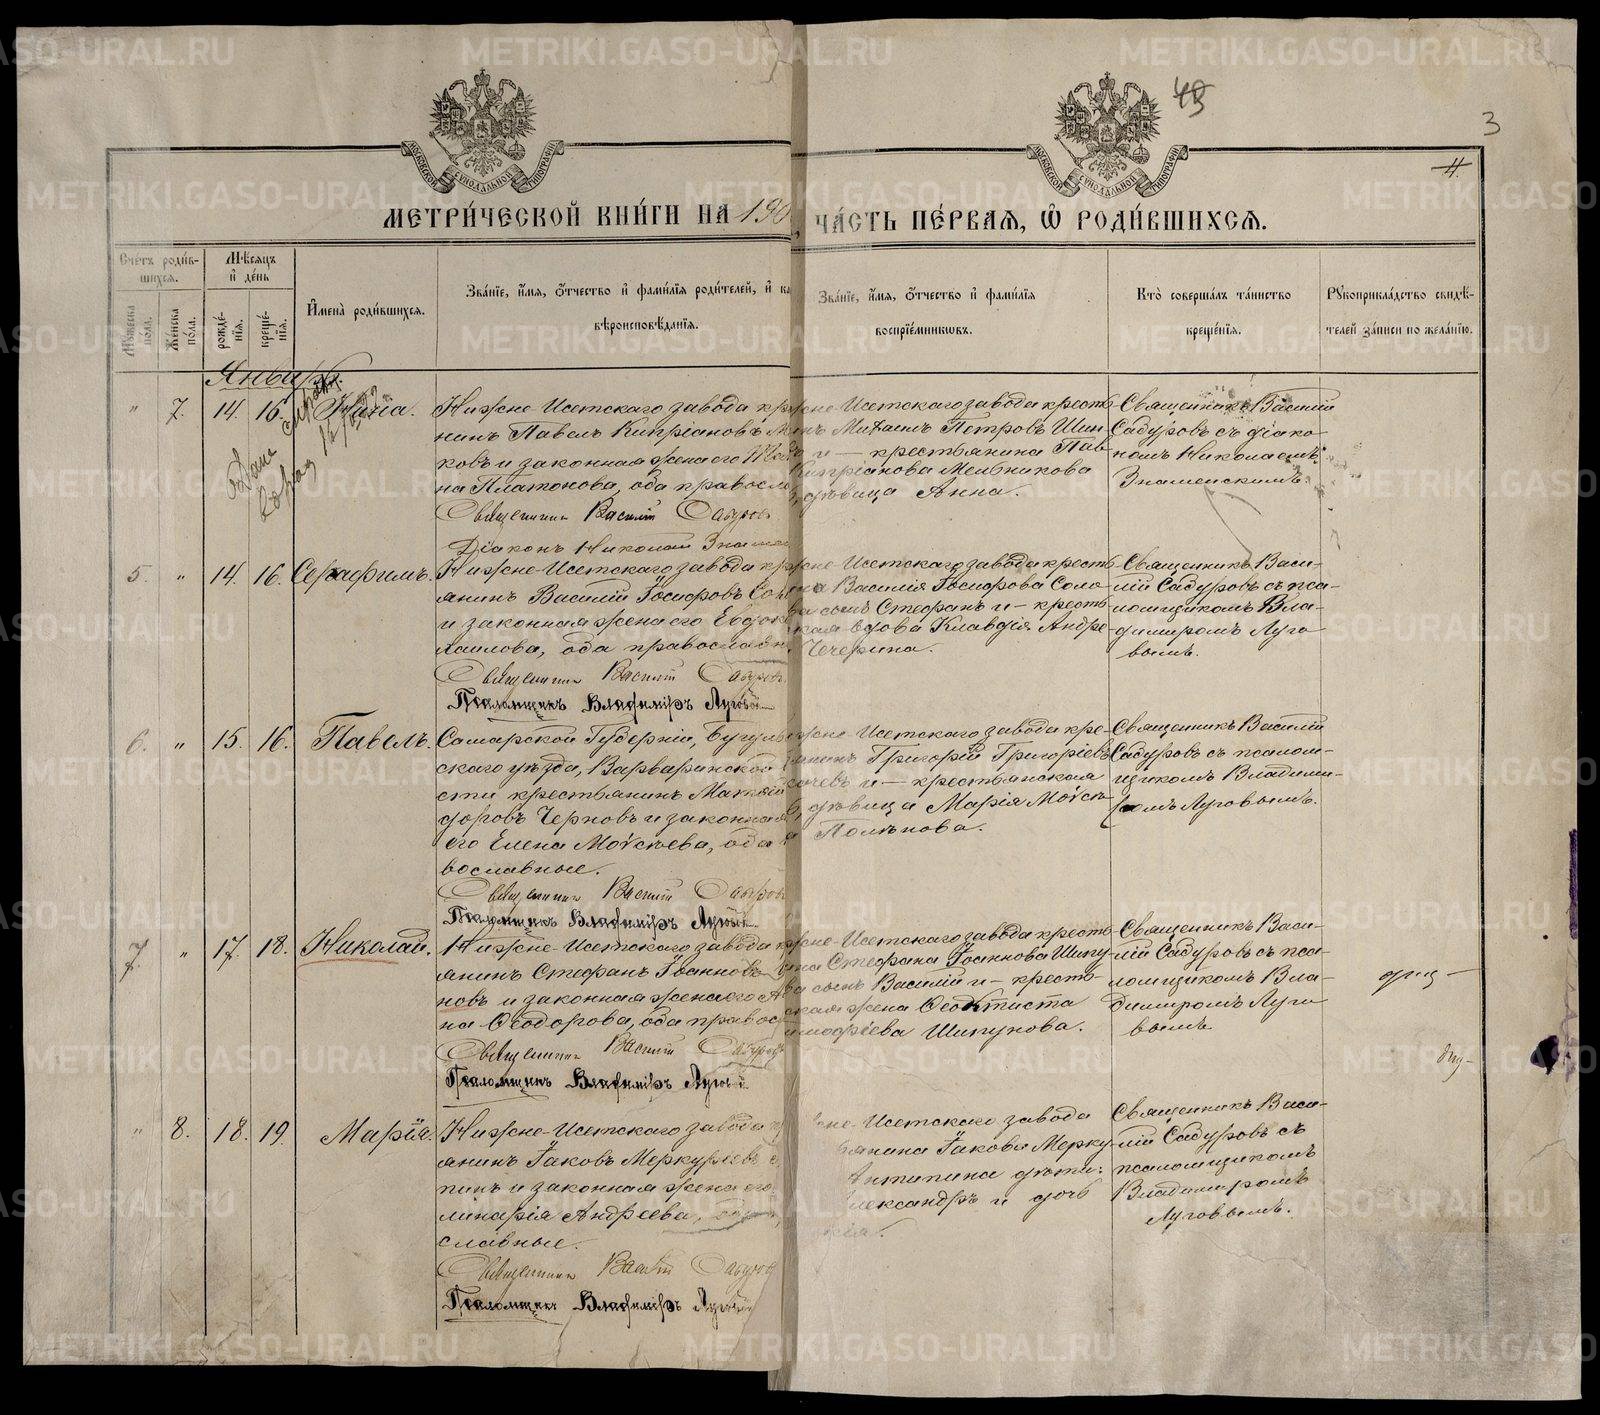 43
3
4.
МОСКОВСКОЙ СѴНОДАЛЬНОЙ ТИПОГРАФІИ
МОСКОВСКОЙ СѴНОДАЛЬНОЙ ТИПОГРАФІИ
МЕТРИ́ЧЕСКОЙ КНИ́ГИ НА 190
ЧА́СТЬ ПЕ́РВАЯ, Ѽ РОДИ́ВШИХСЯ.
Сче́тъ роди́в-
шихся.
Му́жеска по́ла.
Же́нска по́ла.
Мѣ́сяцъ
и де́нь
рожде́-
нїя.
креще́-
нїя.
И́мена роди́вшихся.
Зва́нїе, и́мя, ѻ́тчество и фами́лїя роди́телей, и ка
вѣроисповѣ́данїя.
Зва́нїе, и́мя, ѻ́тчество и фами́лїя
воспрїе́мниковъ.
Кто̀ соверша́лъ та́инство
креще́нїя.
Рукоприкла́дство свидѣ́-
телей за́писи по жела́нїю.
Январь.
" 7. 14. 16. Нина.
Нижне-Исетскаго завода кр
нинъ Павелъ Кипріановъ М
ковъ и законная жена его
на Платонова, оба правосла
Священникъ Василій Сабуровъ
Діаконъ Николай Знамен
жне-Исетскаго завода кресть
нъ Михаилъ Петровъ Шип
и – крестьянина Пав
Кипріанова Мельникова
дѣвица Анна.
Священникъ Василій
Сабуровъ съ діако
номъ Николаемъ
Знаменскимъ.
5. " 14. 16. Серафимъ.
Нижне-Исетскаго завода кр
янинъ Василій Іосифовъ Сол
и законная жена его Евдок
лаилова, оба православн
Священникъ Василій Сабуровъ
Псаломщикъ Владиміръ Луговой
жне-Исетскаго завода кресть
на Василія Іосифова Соло
ва сынъ Стефанъ и – кресть
ская вдова Клавдія Андре-
Чечерина.
Священникъ Васи-
лій Сабуровъ съ пса-
ломщикомъ Вла-
димиромъ Луго
вымъ.
6. " 15. 16. Павелъ.
Самарской Губерніи, Бугуль
скаго уѣзда, Варваринской
сти крестьянинъ Матвѣй
доровъ Черновъ и законная
его Елена Моѵсеева, оба
вославные.
Священникъ Василій Сабуровъ
Псаломщикъ Владиміръ Луговой
жне-Исетскаго завода кре-
янинъ Григорій Григоріевъ
и – крестьянская
дѣвица Марія Моѵсе
Полѣнова.
Священникъ Василій
Сабуровъ съ псалом-
щикомъ Владими-
ромъ Луговымъ.
7. " 17. 18. Николай.
Нижне-Исетскаго завода кр
янинъ Стефанъ Іоанновъ
новъ и законная жена его А
на Ѳеодорова, оба правос
Священникъ Василій Сабуровъ
Псаломщикъ Владиміръ Луговой
жне-Исетскаго завода кресть
на Стефана Іоаннова Шипу
ва сынъ Василій и – кресть-
ская жена Ѳеоктиста
Шипунова.
Священникъ Васи-
лій Сабуровъ съ пса-
ломщикомъ Вла-
димиромъ Луго
вымъ
" 8. 18. 19. Марія.
Нижне-Исетскаго завода кр
янинъ Іаковъ Меркурьевъ
пинъ и законная жена его
линарія Андреева, оба
славные.
Священникъ Василій Сабуровъ
Псаломщикъ Владиміръ Луговой
не-Исетскаго завода
янина Іакова Мерку
Антипина дѣти:
лександръ и дочь
Священникъ Васи-
лій Сабуровъ съ
псаломщикомъ
Владимиромъ
Луговымъ.
METRIKI.GASO-URAL.RU